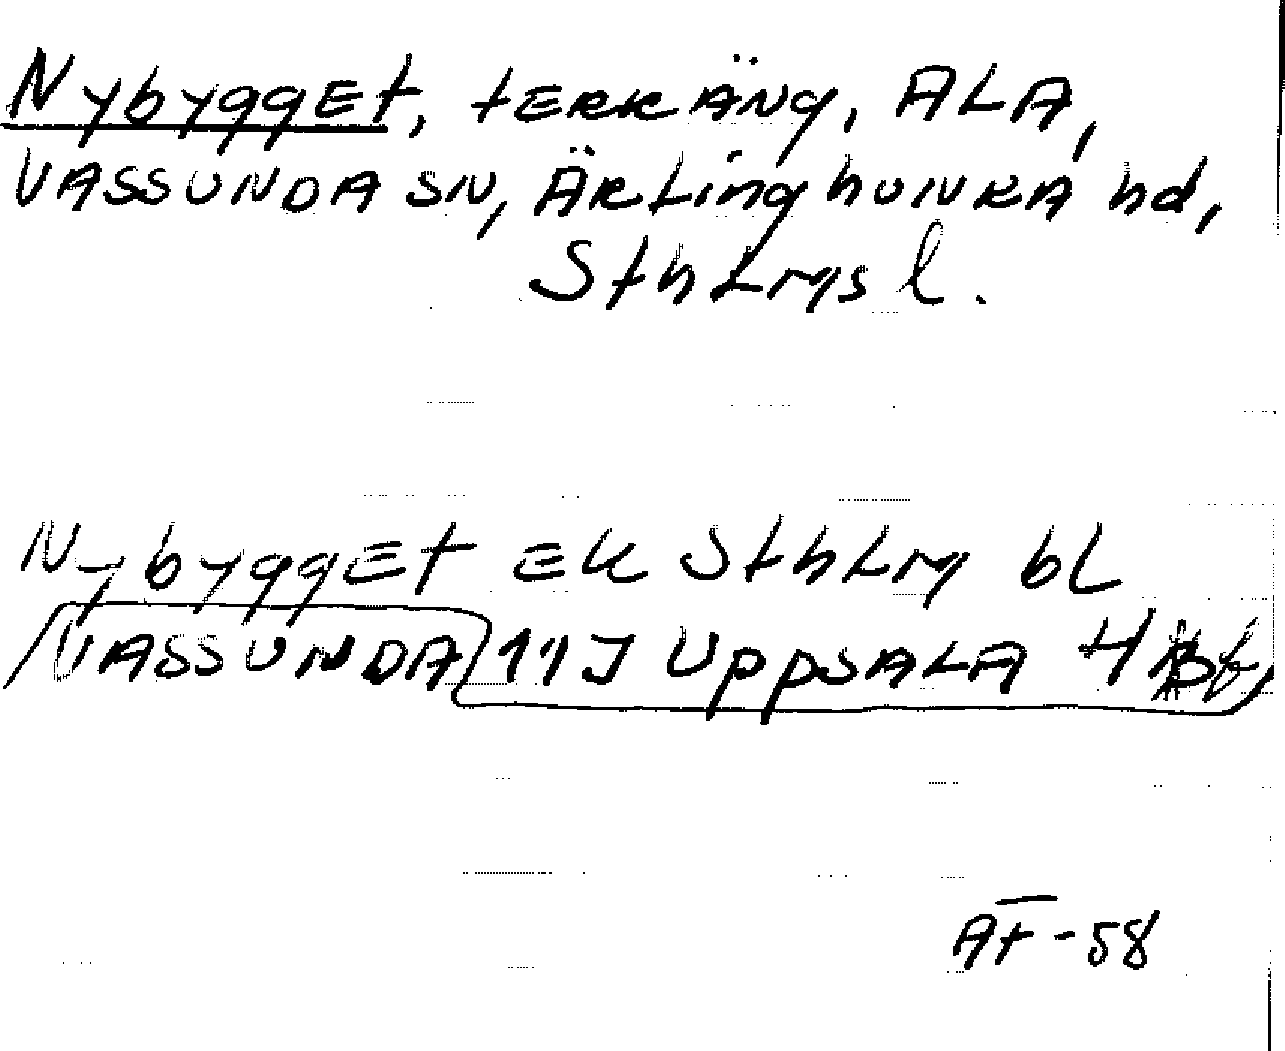 Nybygget, terräng, ALA,
VASSUNDA SN, ÄRLinghUNRA hd,
Sthlms l.
Nybygget EK Sthlm bl
VASSUNDA 11I UppSALA 4
AF-58